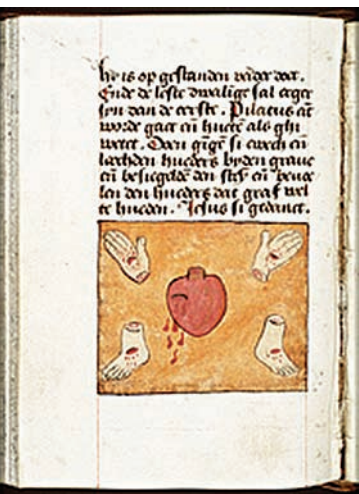 hy is op gestanden vander doet.
Ende de leste dwalige sal erger
syn dan de eerste. Pilatus āt
worde gaet eñ huetē als ghi
weret. Doen gīgē si ewech eñ
hueders by den graue
eñ besiegeldē den eñ beuae
len den hueders dat graf wel
te hueden. Jesus si gedanct.